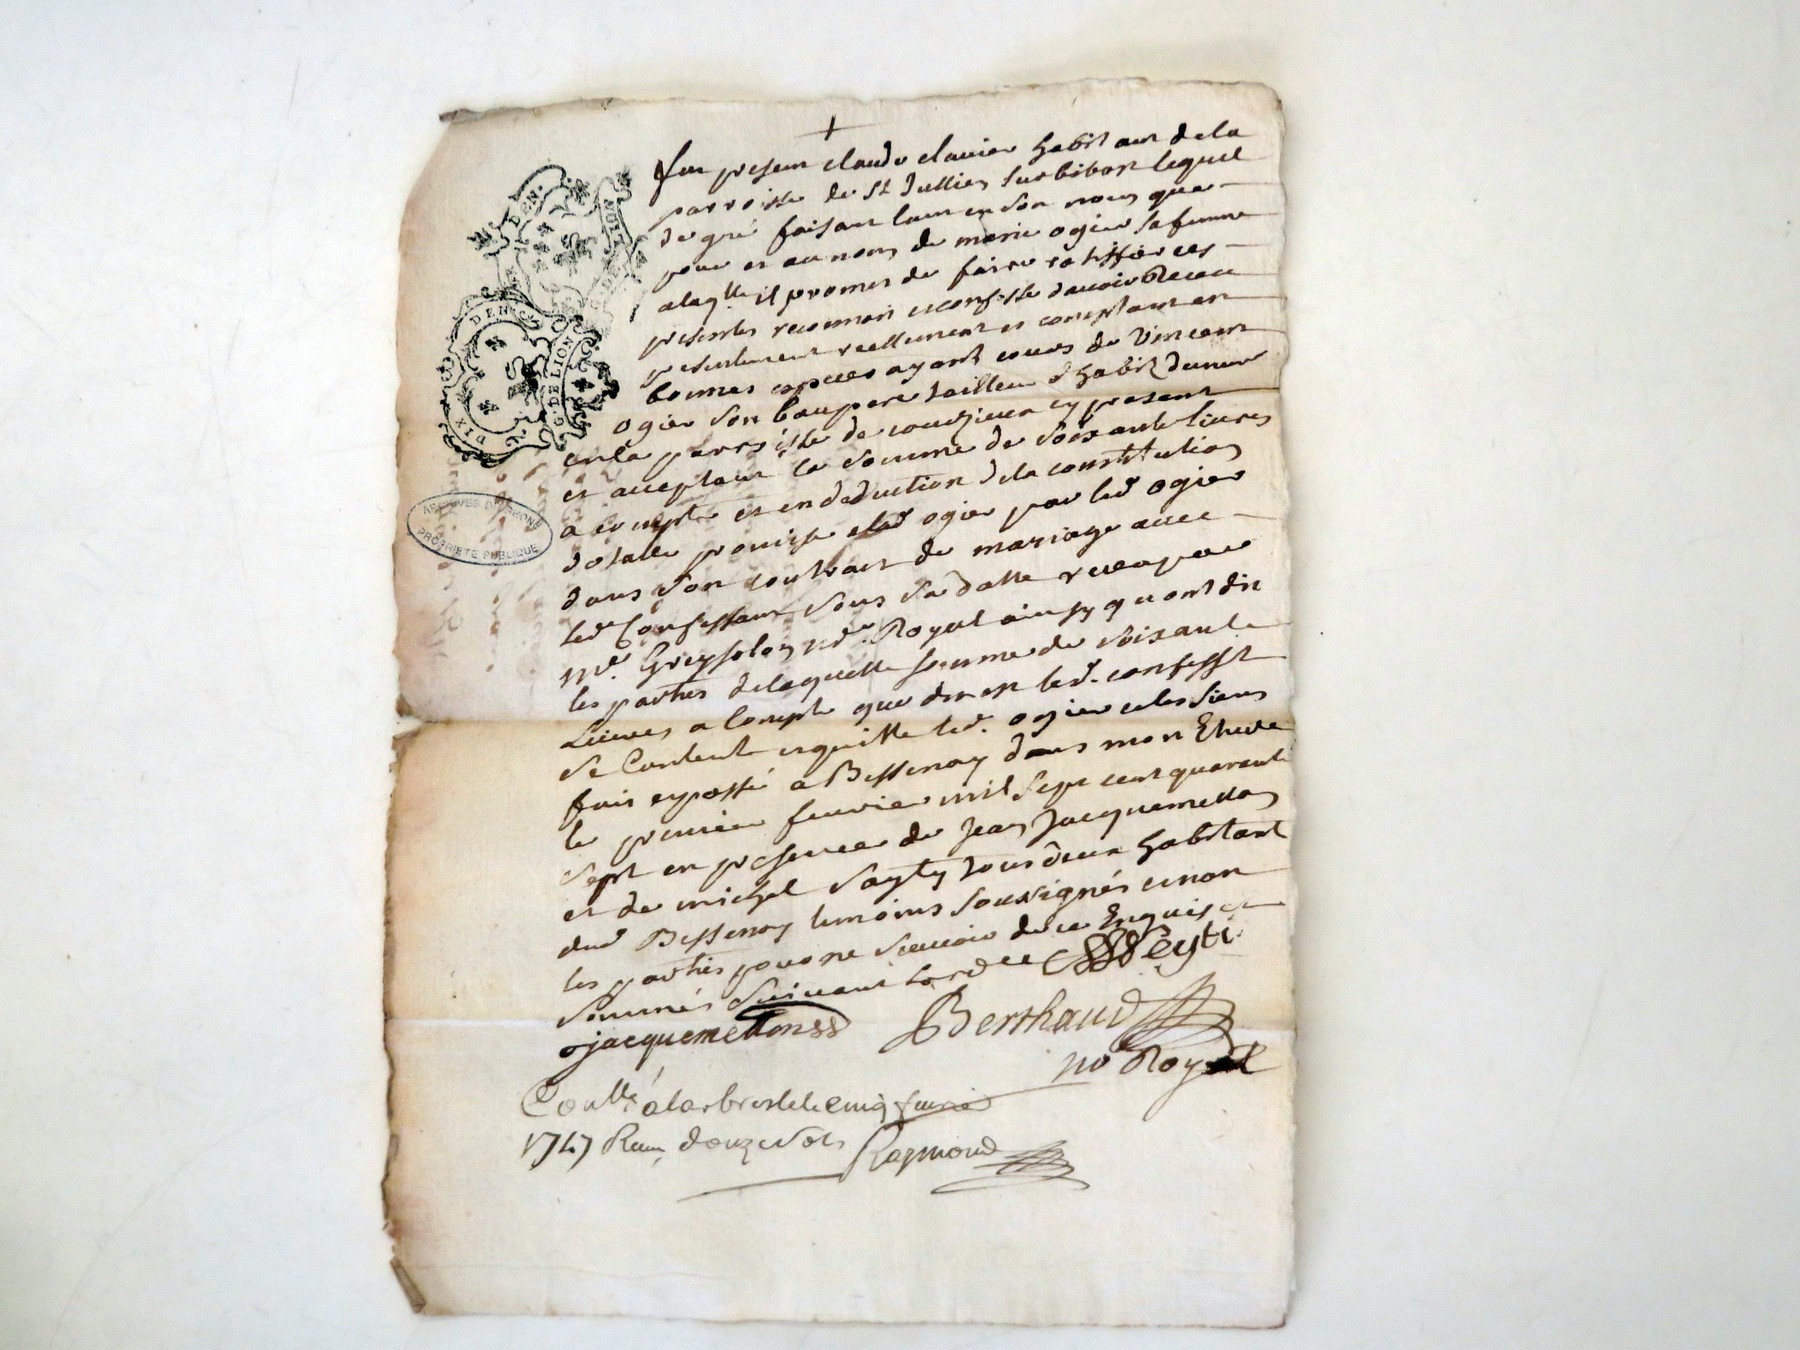 fut present claude clavier habitant de la
parroisse de st Jullien sur bibost lequel
de gré faisant tant en son nom que
pour et au nom de marie ogier sa femme
a laqlle il promet de faire ratiffier ces
presentes reconnoit et confesse d'avoir Receu
presentement reellement et comptant en
bonnes especes ayant cours de Vincent
ogier son beaupere tailleur d'habit demt
en la parroisse de courzieux cy present
et acceptant la somme de soixante livres
a compte et en deduction de la constitution
dotalle promise a lad ogier par led ogier
dans son contrait de mariage avec
led Confessant sous sa datte receu par
me Greysolon nre Royal ainsy qu'ont dit
les parties de laquelle somme de soixante
Livres a Compte que dessus led. confesst
se Contente et quitte led. ogier et les siens
fait et passé a Bessenay dans mon Etude
le premier fevrier mil sept cent quarante
sept en presence de Jean Jacquemetton
et de michel sayty tous deux habitant
dud Bessenay temoins soussignés et non
les parties pour ne sçavoir de ce Enquis et
sommés suivant lord ce Seyti
jacquemetton Berthaud
no Royal
Conllé a larbresle le cinq fevrier
1747 Receu douze sols Raymond
DIX DEN.
G. DE LION
DEN.
ARCHIVES DU RHONE
PROPRIETE PUBLIQUE